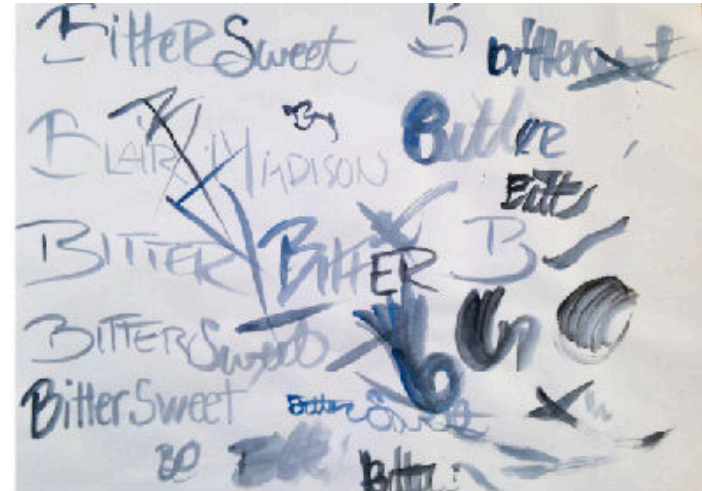 BitteR Sweet B bittersweet
BLAIR MADISON B
BITTER BITTER B
Bitt
BITTER Sweet
Bitter Sweet Bitter Sweet